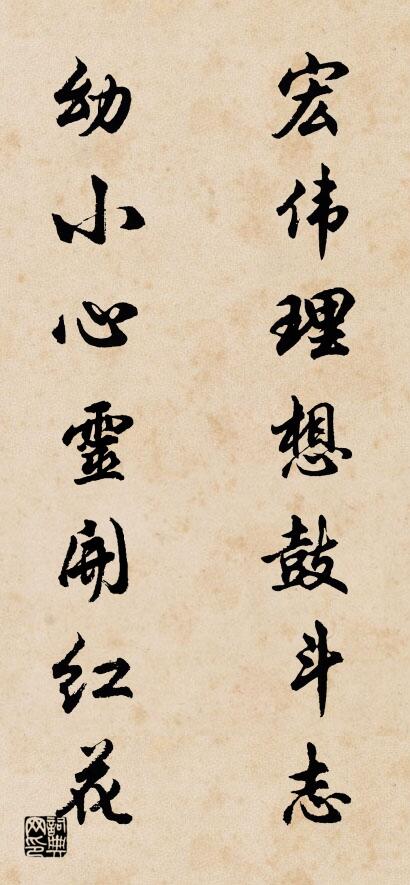 宏伟理想鼓斗志
幼小心靈開红花
詞典网印